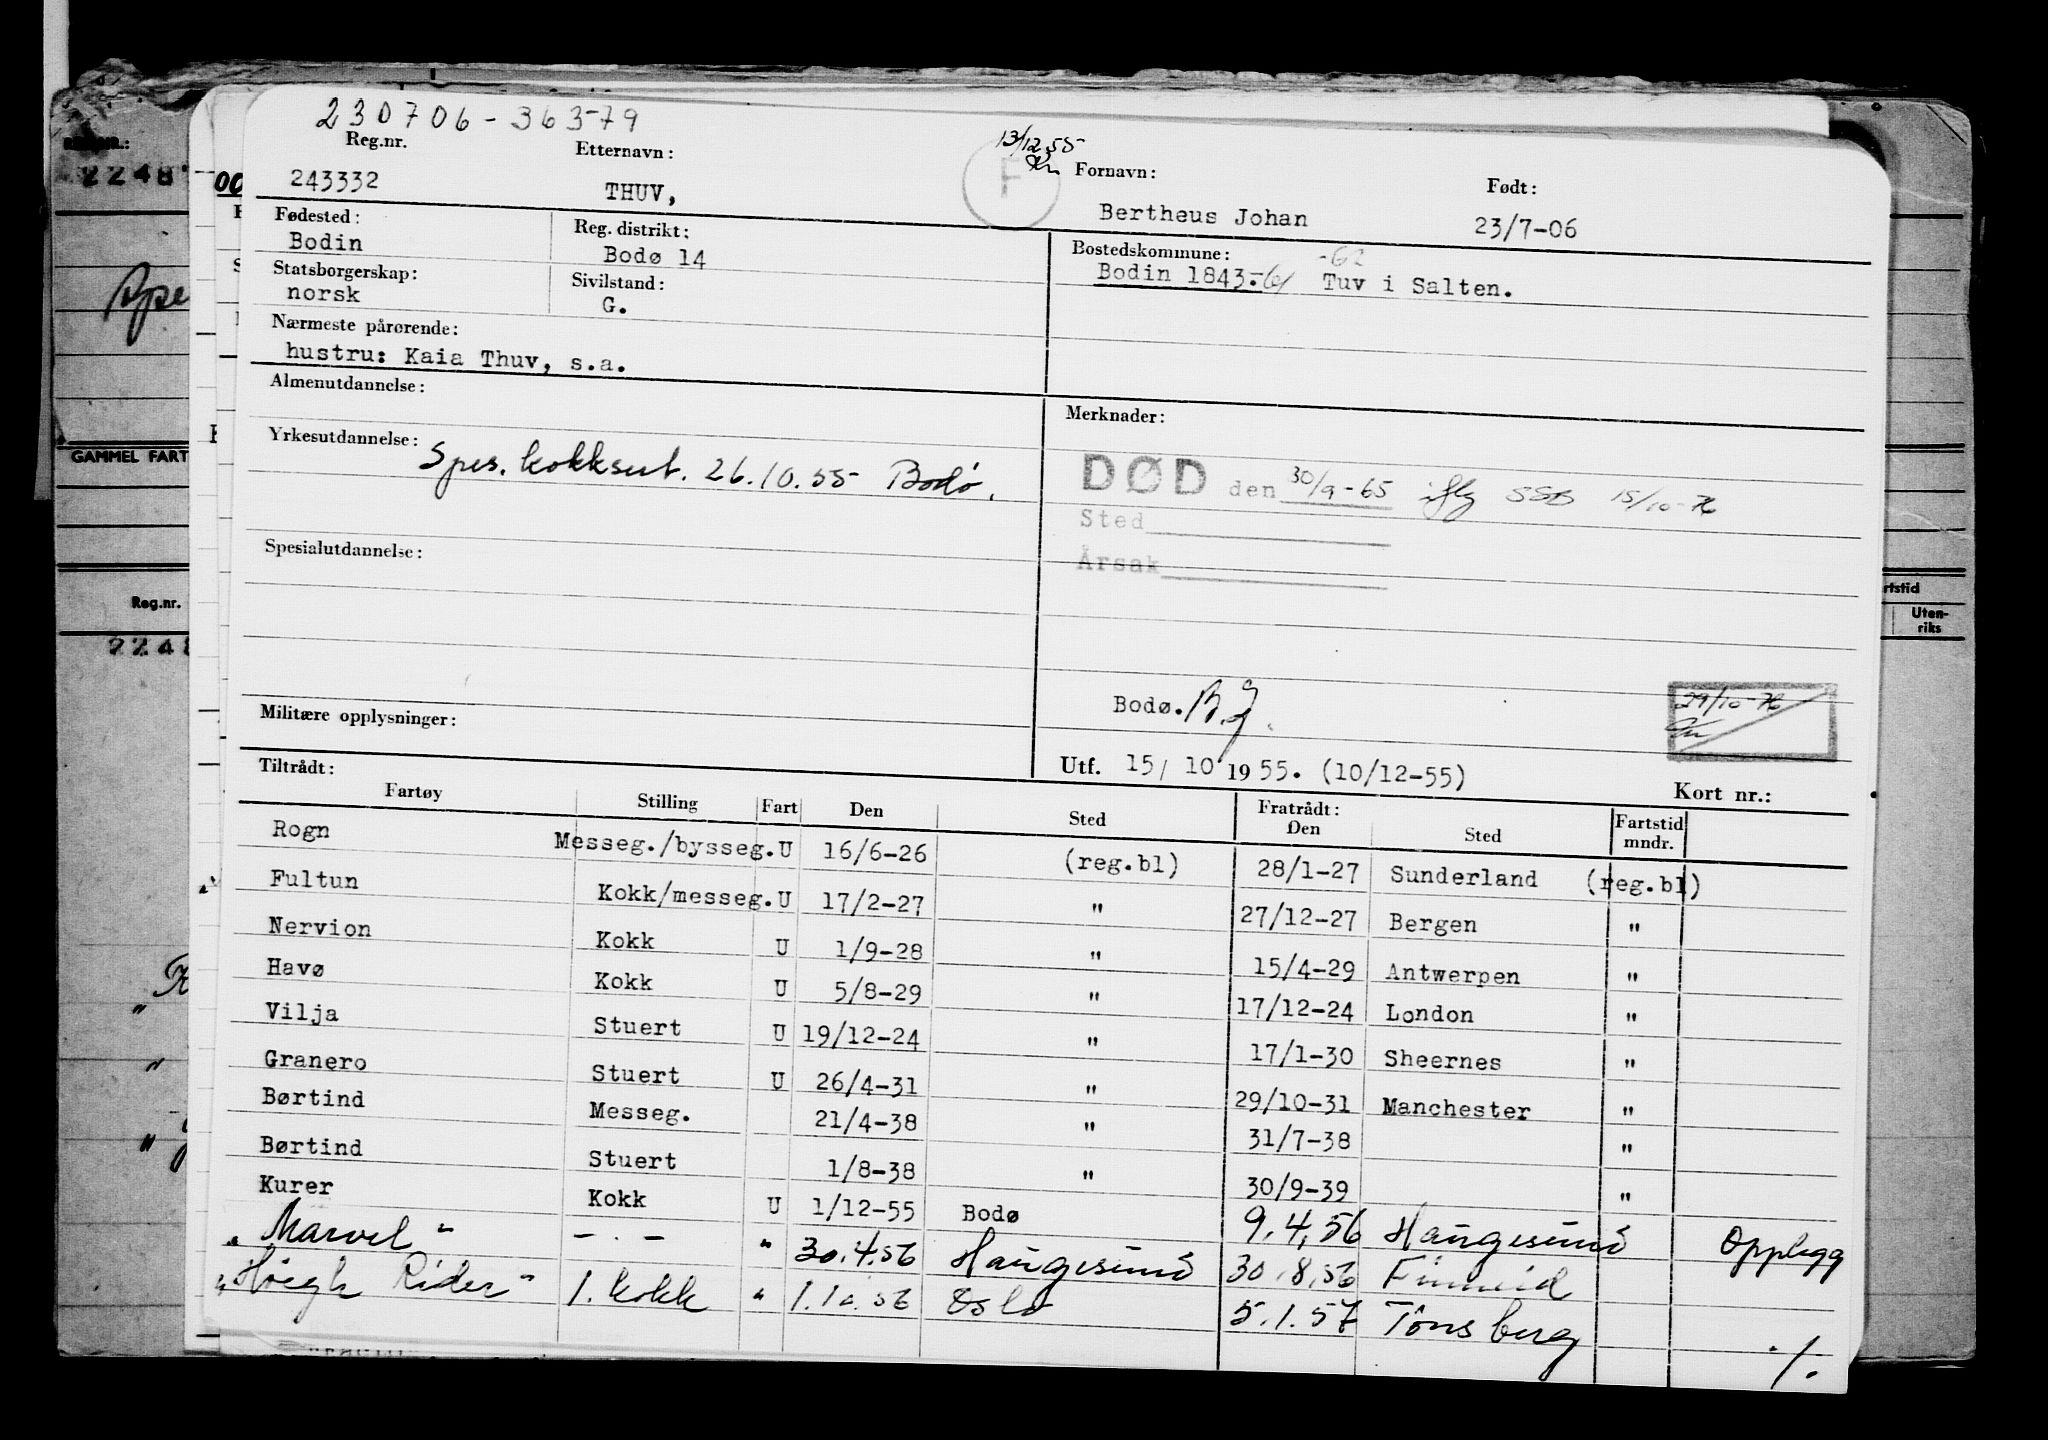 230706-36379
Reg.nr. Etternavn: 13/12 55 Fornavn: Født:
243332 THUV, F Bertheus Johan 23/7-06
Fødested: Reg. distrikt: Bostedskommune: -62
Bodin Bodø 14 Bodin 1843.-61 Tuv i Salten.
Statsborgerskap: Sivilstand:
norsk G.
Nærmeste pårørende:
hustru: Kaia Thuv, s.a.
Almenutdannelse: Merknader:
Yrkesutdannelse: Spes. kokksert. 26.10.55 Bodø.
DØD den 30/9-65 iflg SSB 15/10-76
Sted
Årsak
Spesialutdannelse:
Militære opplysninger: Bodø. B.J. 29/10-76
Utf. 15/ 10 1955. (10/12-55)
Kort nr.:
Tiltrådt: Fratrådt:
Fartøy Stilling Fart Den Sted Den Sted Fartstid mndr.
Rogn Messeg./bysseg. U 16/6-26 (reg.bl) 28/1-27 Sunderland (reg.bl)
Fultun Kokk/messeg. U 17/2-27 " 27/12-27 Bergen "
Nervion Kokk U 1/9-28 " 15/4-29 Antwerpen "
Havø Kokk U 5/8-29 " 17/12-24 London "
Vilja Stuert U 19/12-24 " 17/1-30 Sheernes "
Granero Stuert U 26/4-31 " 29/10-31 Manchester "
Børtind Messeg. 21/4-38 " 31/7-38 "
Børtind Stuert 1/8-38 " 30/9-39 "
Kurer Kokk U 1/12-55 Bodø 9.4.56 Haugesund Opplegg
"Marvel" - . - " 30.4.56 Haugesund 30.8.56 Finneid
"Höegh Rider" 1. kokk " 1.10.56 Oslo 5.1.57 Tönsberg
./.
REG.NR.:
2248
00
GAMMEL FART
Reg.nr.
2248
rtstid
Uten-
riks